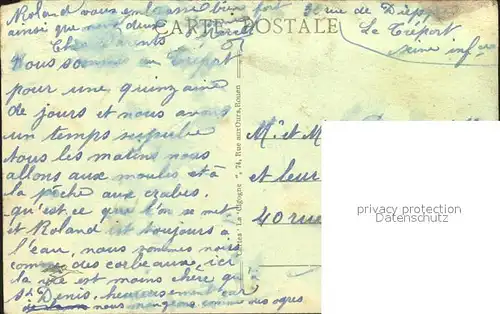 Roland vous embrasse bien fort
ainsi que nous deux
Marcel
CARTE POSTALE
31 rue de Dieppe
Le Tréport
Seine infre
Chers parents
Nous sommes au Tréport
pour une quinzaine
de jours et nous avons
un temps superbe
tous les matins nous
allons aux moules et à
la pêche aux crabes.
qu'est ce que l'on se met
et Roland est toujours à
l'eau, nous sommes noirs
comme des corbeaux, ici
la vie est moins chère qu'à
St Denis, heureusement car
nous mangeons comme des ogres.
"La Cigogne", 74, Rue aux Ours, Rouen
Mr et M
et leur
40 rue
privacy protection
Datenschutz